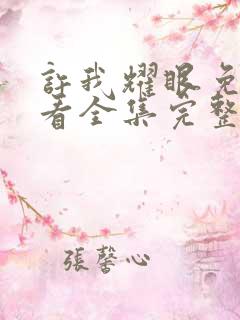 許我耀眼免
看全集完整
張馨心